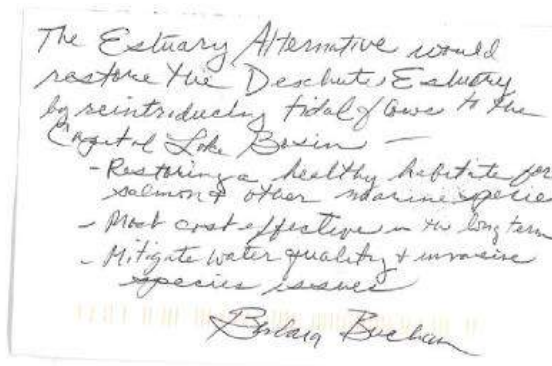 The Estuary Alternative would
restore the Deschutes Estuary
by reintroducing tidal flows to the
Capitol Lake Basin —
- Restoring a healthy habitate for
salmon & other marine species
- Most cost effective in the long term
- Mitigate water quality & invasive
species issues
Barbara Buchan